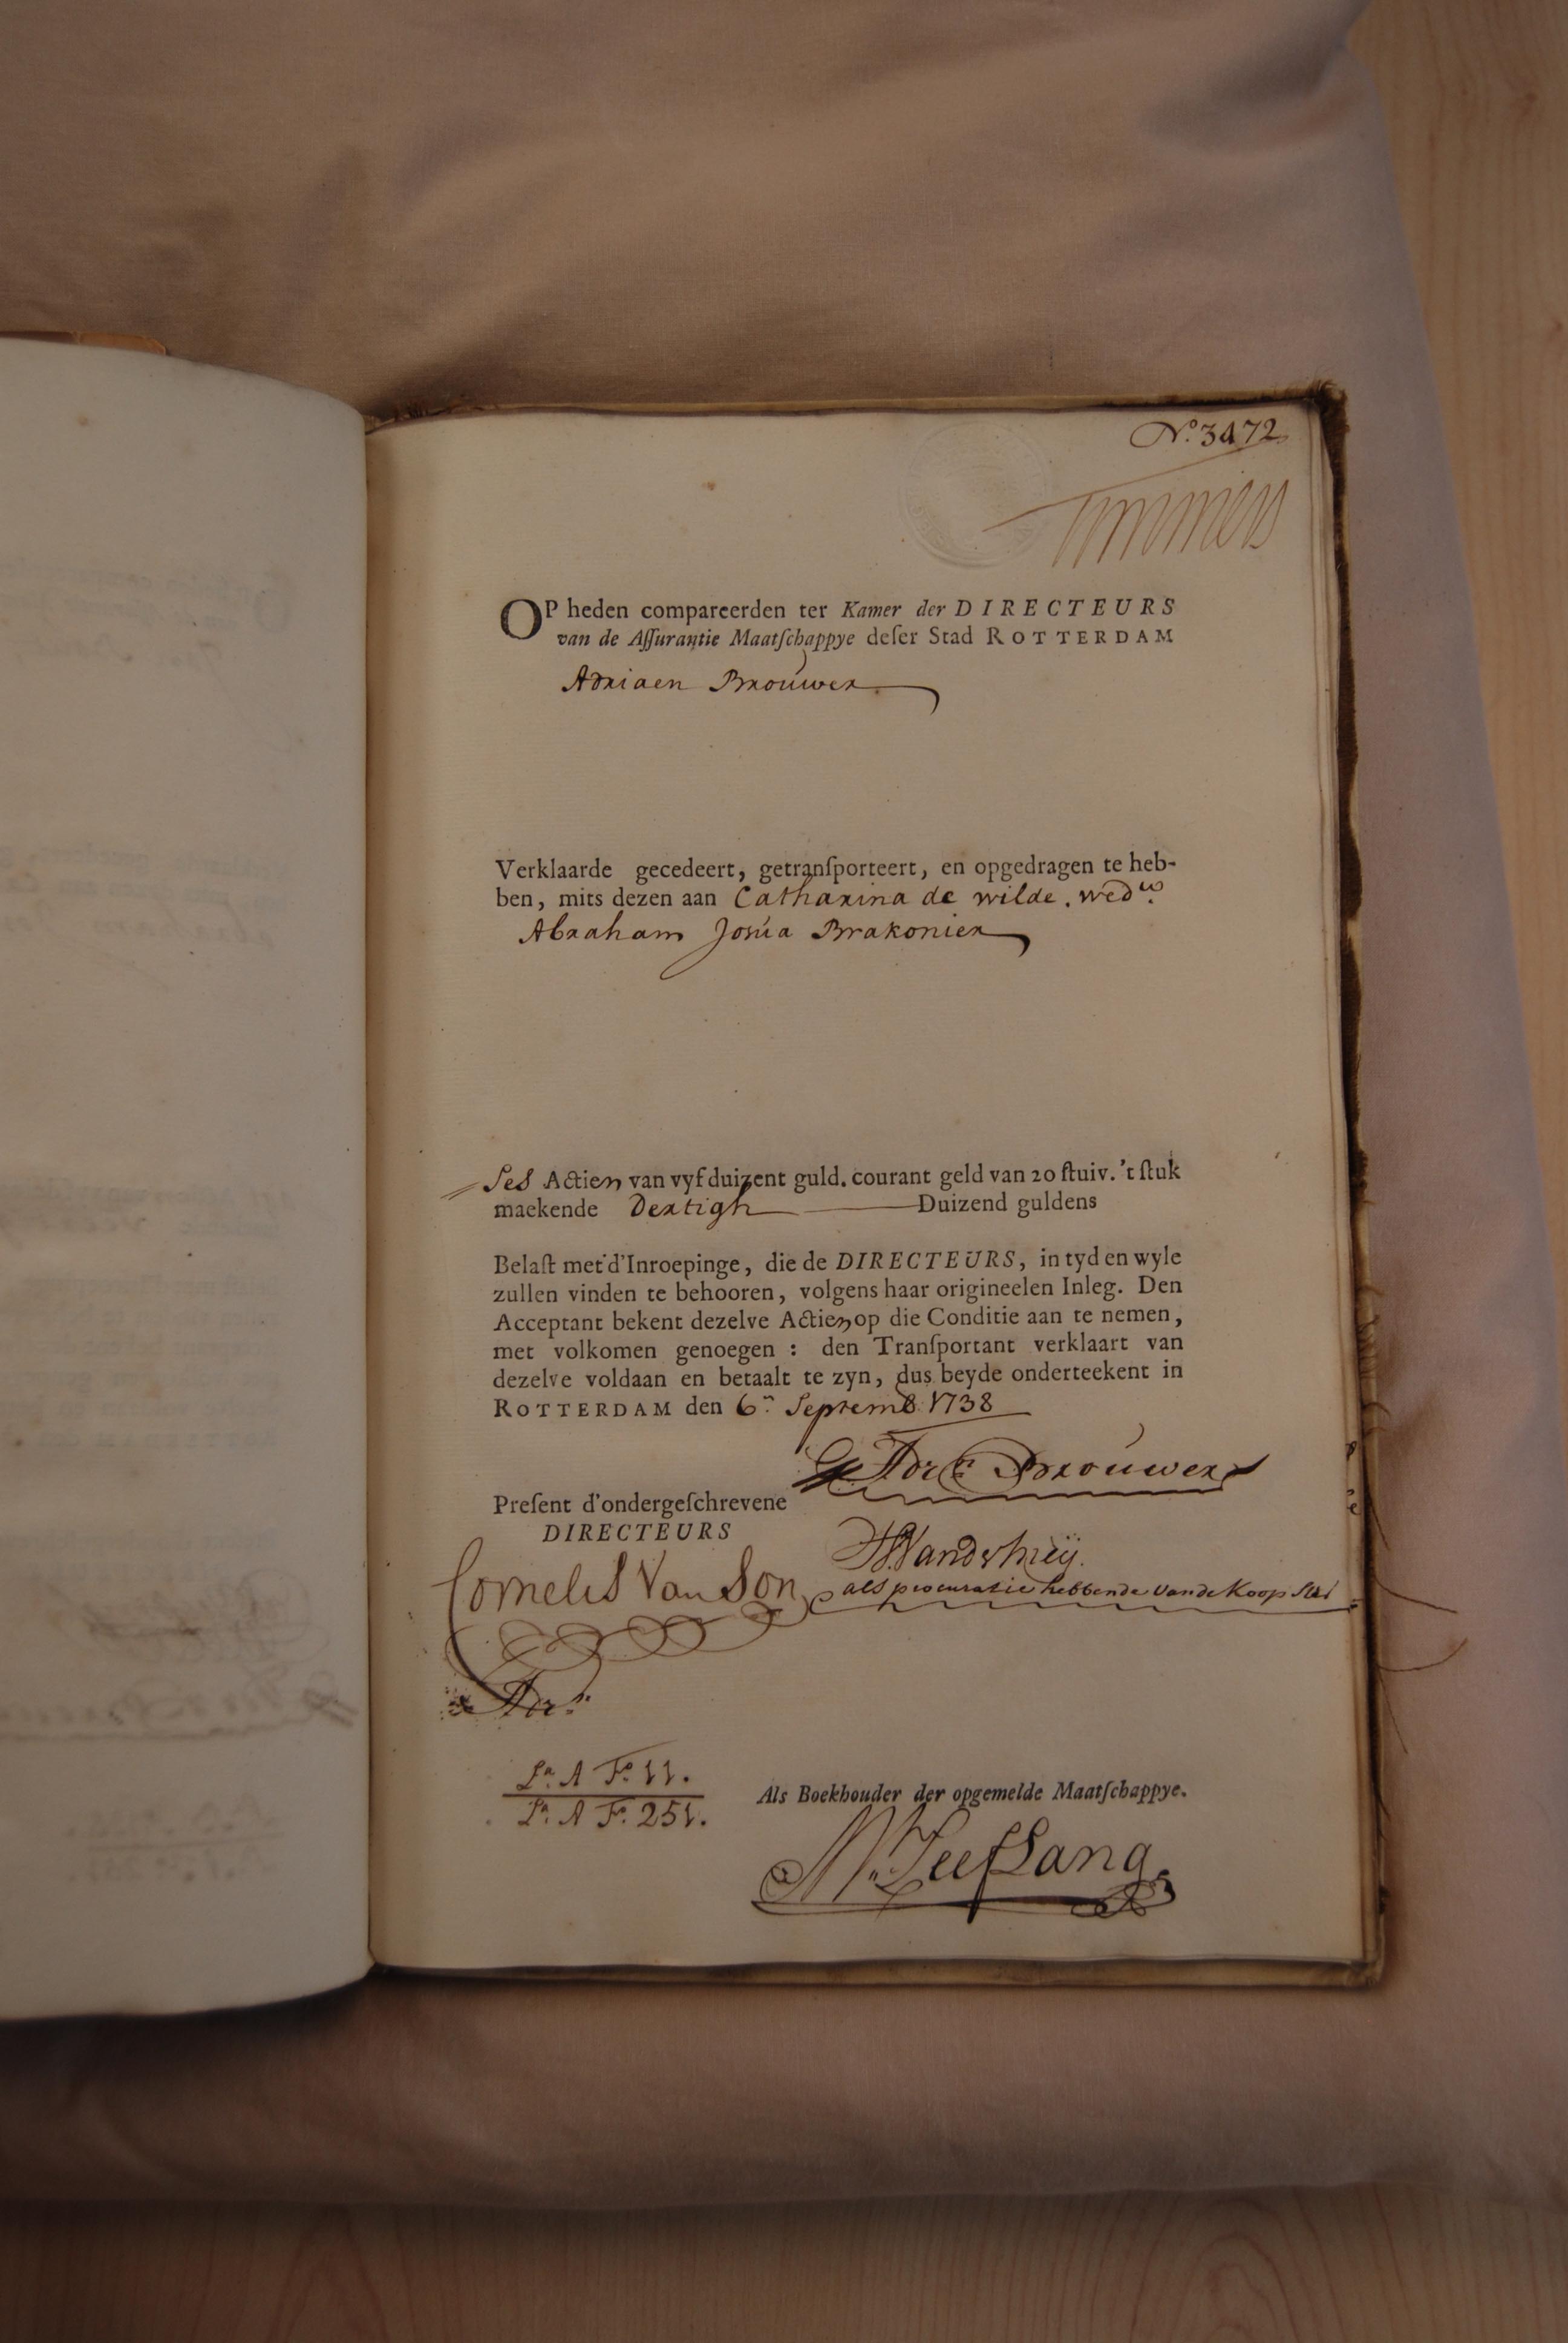 No. 3472
Timmers
OP heden compareerden ter Kamer der DIRECTEURS
van de Aſſurantie Maatſchappye deſer Stad ROTTERDAM
Adriaen Brouwer
Verklaarde gecedeert, getranſporteert, en opgedragen te heb-
ben, mits dezen aan Catharina de wilde. wedw.
Abraham Josúa Brakonier
Ses Actien van vyf duizent guld. courant geld van 20 ſtuiv. 't ſtuk
maekende Dertigh Duizend guldens
Belaſt met d'Inroepinge, die de DIRECTEURS, in tyd en wyle
zullen vinden te behooren, volgens haar origineelen Inleg. Den
Acceptant bekent dezelve Actien op die Conditie aan te nemen,
met volkomen genoegen : den Tranſportant verklaart van
dezelve voldaan en betaalt te zyn, dus beyde onderteekent in
ROTTERDAM den 6n Septemb 1738
Adr: Broúwer
Preſent d'ondergeſchrevene
DIRECTEURS
Cornelis Van Son
als procuratie hebbende van de Koopster
Adr:
La. A Fo. 11.
La. A Fo. 251.
Als Boekhouder der opgemelde Maatſchappye.